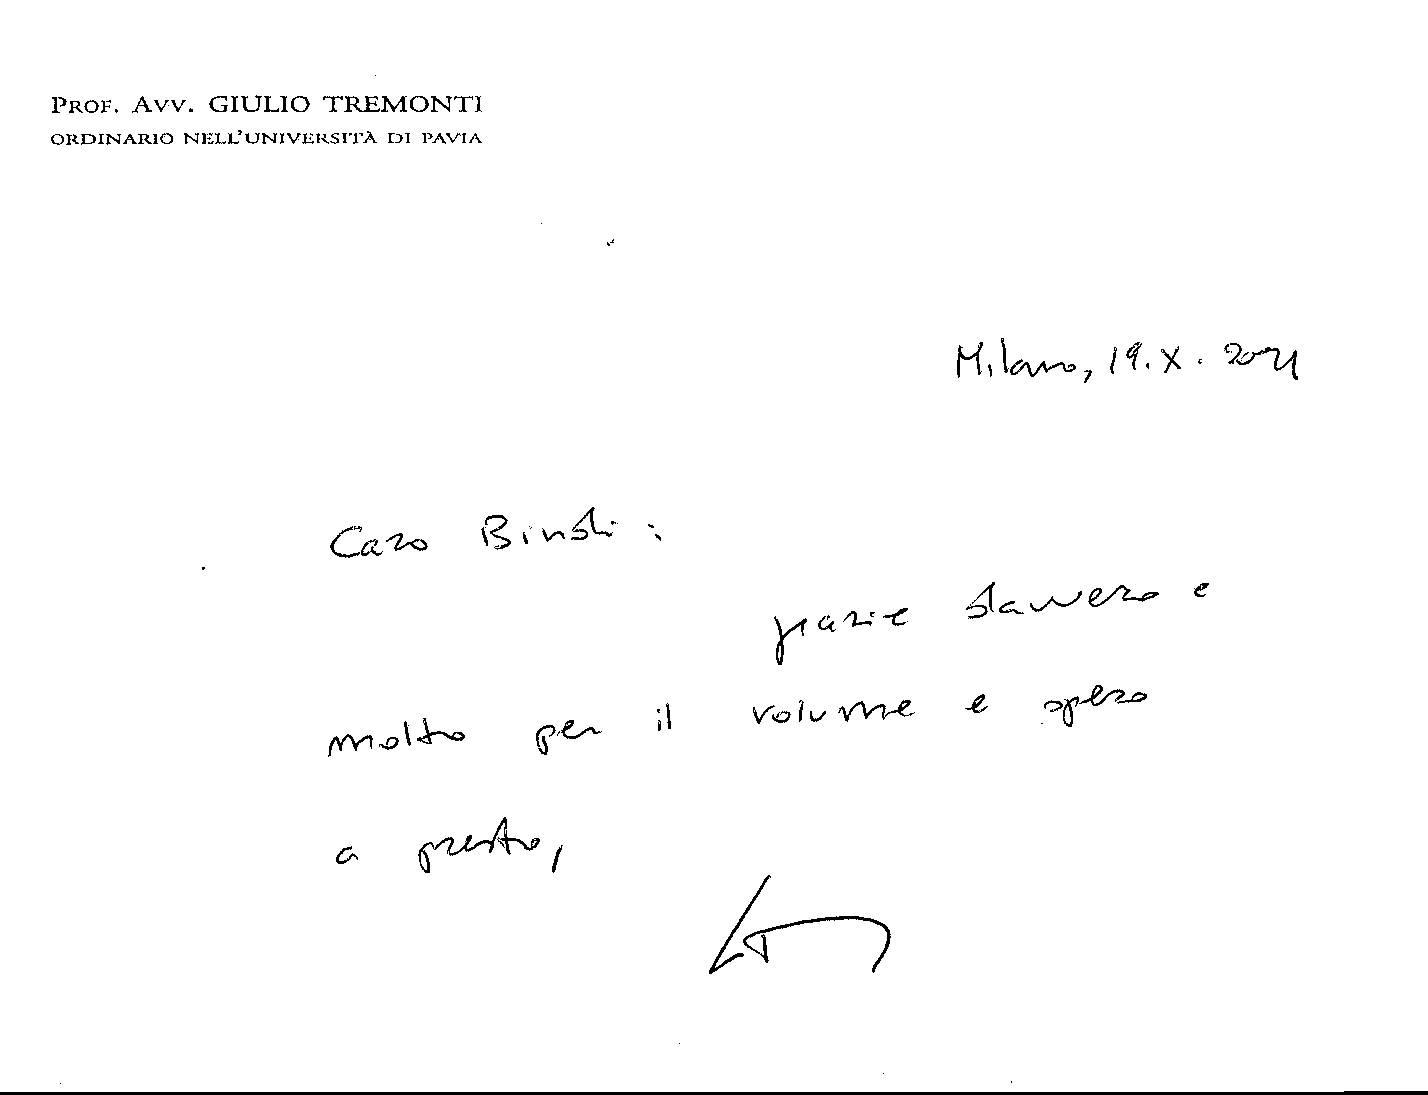 PROF. AVV. GIULIO TREMONTI
ORDINARIO NELL'UNIVERSITÀ DI PAVIA
Milano, 19. X. 2021
Caro Bindi:
grazie davvero e
molto per il volume e spero
a presto,